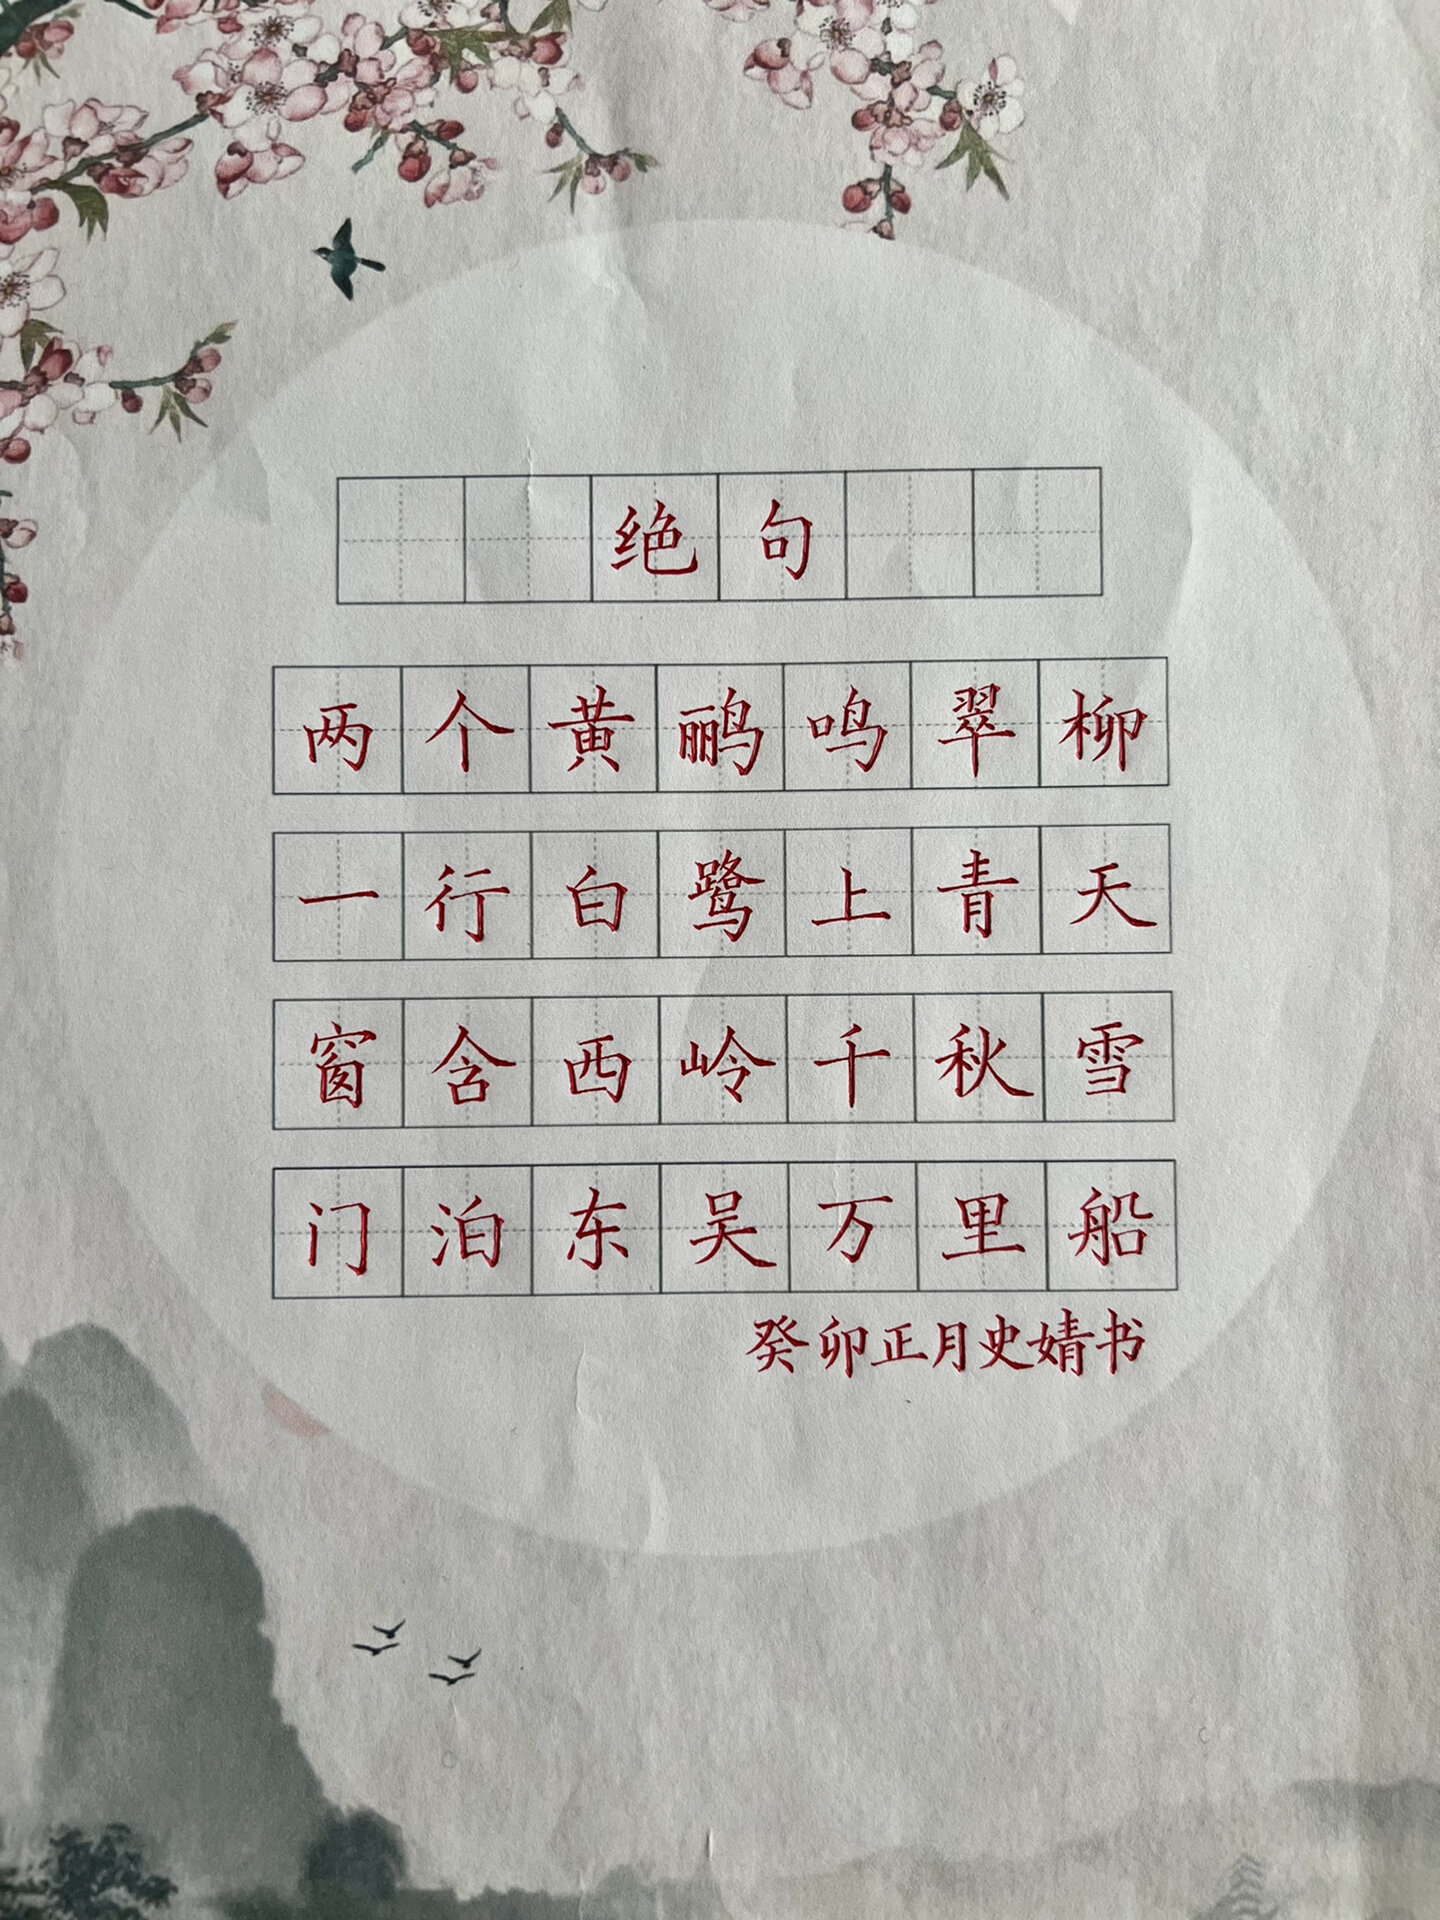 绝句
两个黄鹂鸣翠柳
一行白鹭上青天
窗含西岭千秋雪
门泊东吴万里船
癸卯正月史婧书